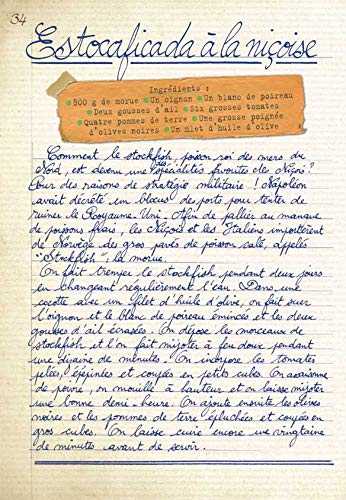 34
Estocaficada à la niçoise
Ingrédients :
500 g de morue Un oignon Un blanc de poireau
Deux gousses d'ail Six grosses tomates
Quatre pommes de terre Une grosse poignée
d'olives noires Un filet d'huile d'olive
Comment le stockfish, poisson roi des mers du
Nord, est devenu une des spécialités favorites des Niçois ?
Pour des raisons de stratégie militaire ! Napoléon
avait décrété un blocus des ports pour tenter de
ruiner le Royaume-Uni. Afin de pallier au manque
de poissons frais, les Niçois et les Italiens importèrent
de Norvège des gros pavés de poisson salé, appelés
"Stockfish" : la morue.
On fait tremper le stockfish pendant deux jours
en changeant régulièrement l'eau. Dans une
cocotte avec un filet d'huile d'olive, on fait suer
l'oignon et le blanc de poireau émincés et les deux
gousses d'ail écrasées. On dépose les morceaux de
stockfish et l'on fait mijoter à feu doux pendant
une dizaine de minutes. On incorpore les tomates
pelées, épépinées et coupées en petits cubes. On assaisonne
de poivre, on mouille à hauteur et on laisse mijoter
une bonne demi-heure. On ajoute ensuite les olives
noires et les pommes de terre épluchées et coupées en
gros cubes. On laisse cuire encore une vingtaine
de minutes avant de servir.